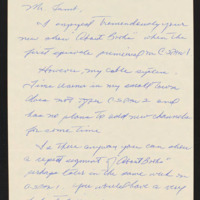 Mr. Lamb,
I enjoyed tremendously your
new show "About Books" when the
first episode premiered on C-SPAN 2
However, my cable system,
Time Warner in my small town
does not get C-SPAN 2 and
has no plans to add new channels
for some time.
Is there anyway you can show
a repeat segment of "About Books"
perhaps later in the same week on
would have a very